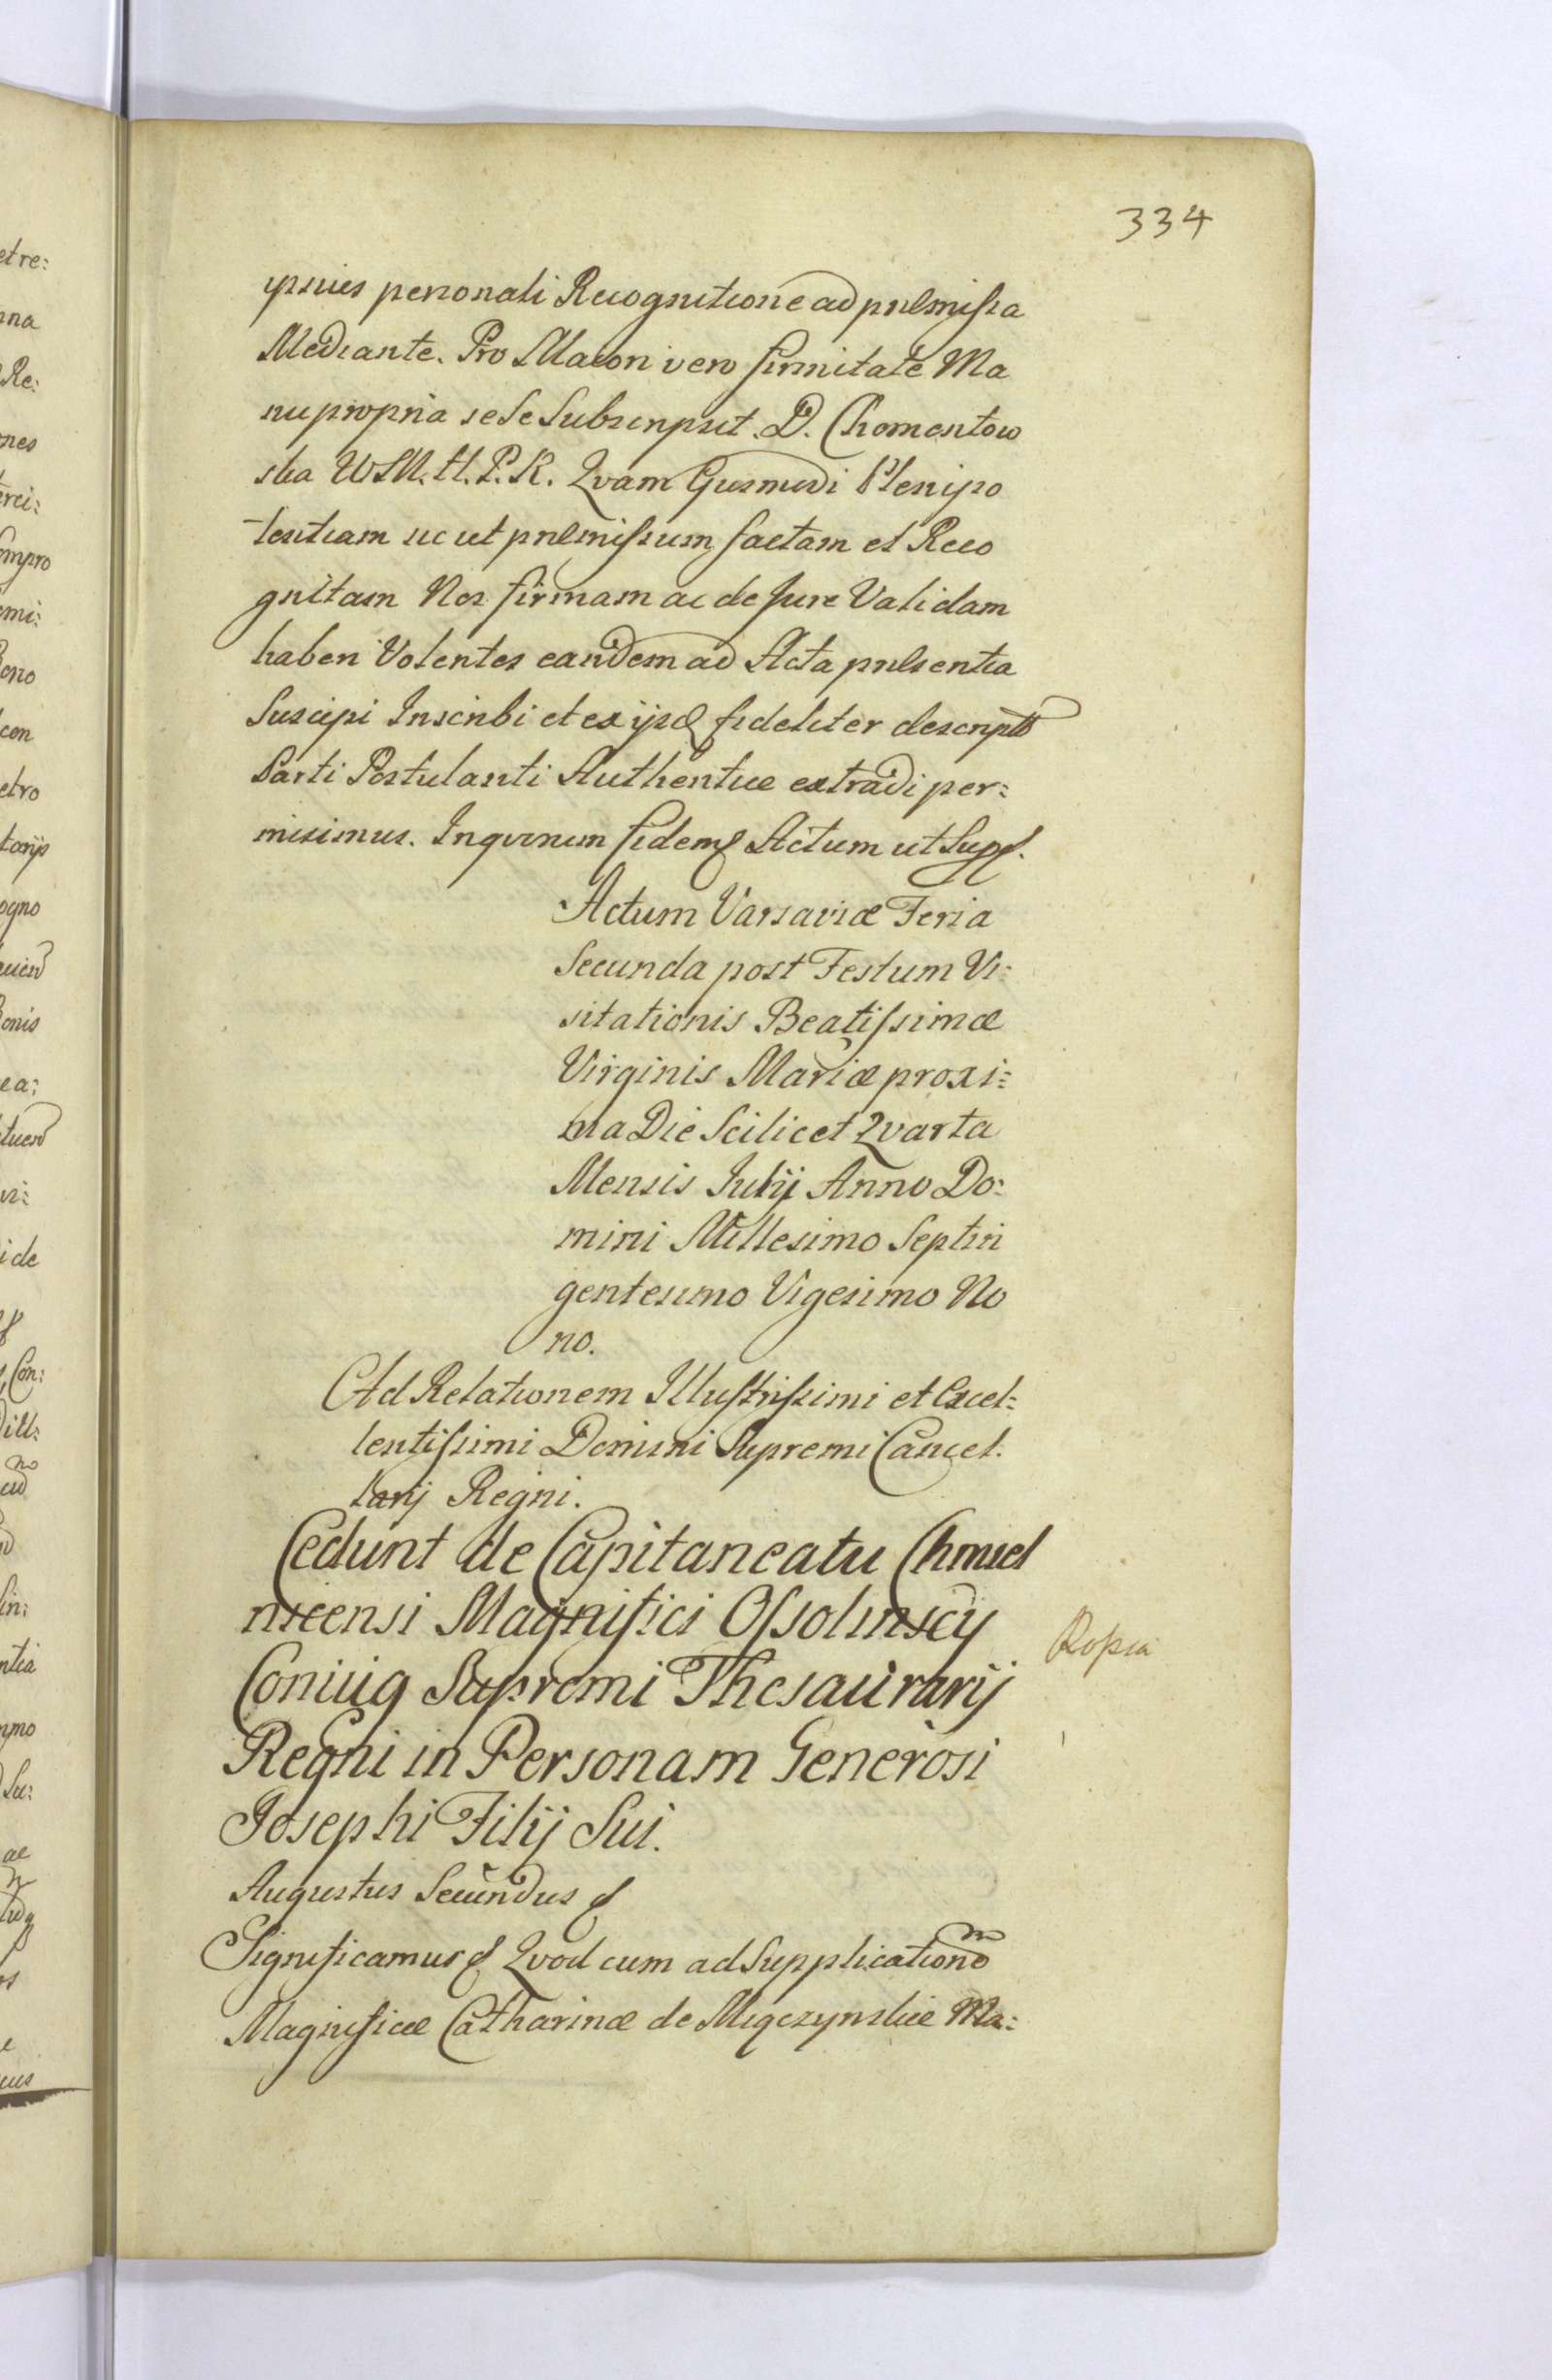 334
ipsius personali Recognitione ad prӕmissa
Mediante. Pro Maiori vero firmitate Ma
nu propria sese Subscripsit. D. Chomentow
ska W M. H. P. K. Qvam Eiusmodi Plenipo
tentiam uc ut prӕmissum factam et Reco
gnitam Nos firmam ac de Jure Validam
haberi Volentes eandem ad Acta prӕsentia
Suscipi Inscribi et ex ijsd fideliter descriptã
Parti Postulanti Authentice extradi per:
misimus. In qvorum fidem Actum ut Supr.
Actum Varsaviæ Feria
Secunda post Festum Vi:
sitationis Beatissimæ
Virginis Mariæ proxi:
ma Die Scilicet Qvarta
Mensis Julij Anno Do:
mini Millesimo Septin
gentesimo Vigesimo No
no.
Ad Relationem Illustrissimi et Excel:
lentissimi Domini Supremi Cancel.
larij Regni.
Cedunt de Capitaneatu Chmiel
nicensi Magnifici Ossolinscij
Coniug Supremi Thesaurarij
Regni in Personam Generosi
Josephi Filij Sui.
Kopia
Augustus Secundus
Significamus Qvod cum ad Supplicationẽ
Magnificæ Catharinæ de Miączynskie Ma: